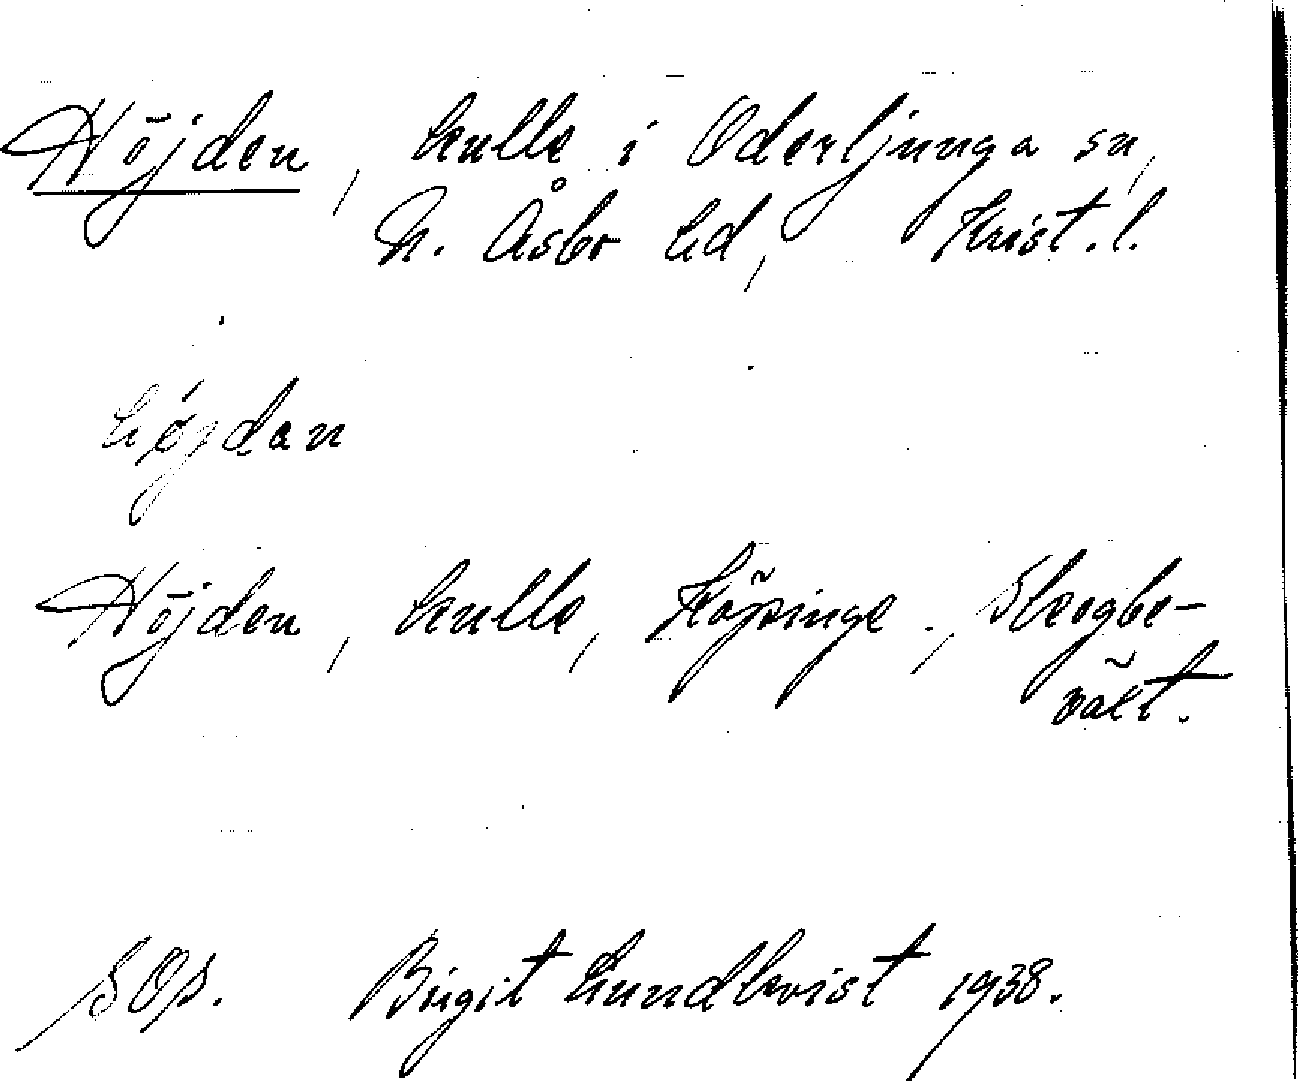 Höjden, kulle i Oderljunga sn,
N. Åsbo hd, Krist. l.
höjdan
Höjden, kulle, Köpinge., Skogbe-
växt.
SOS. Birgit Lundkvist 1938.